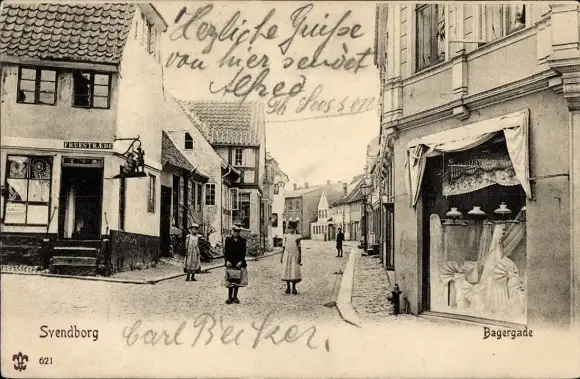 Herzliche Grüße
von hier sendet
Alfred
FRUESTRÆDE
Svendborg
Carl Becker.
Bagergade
621